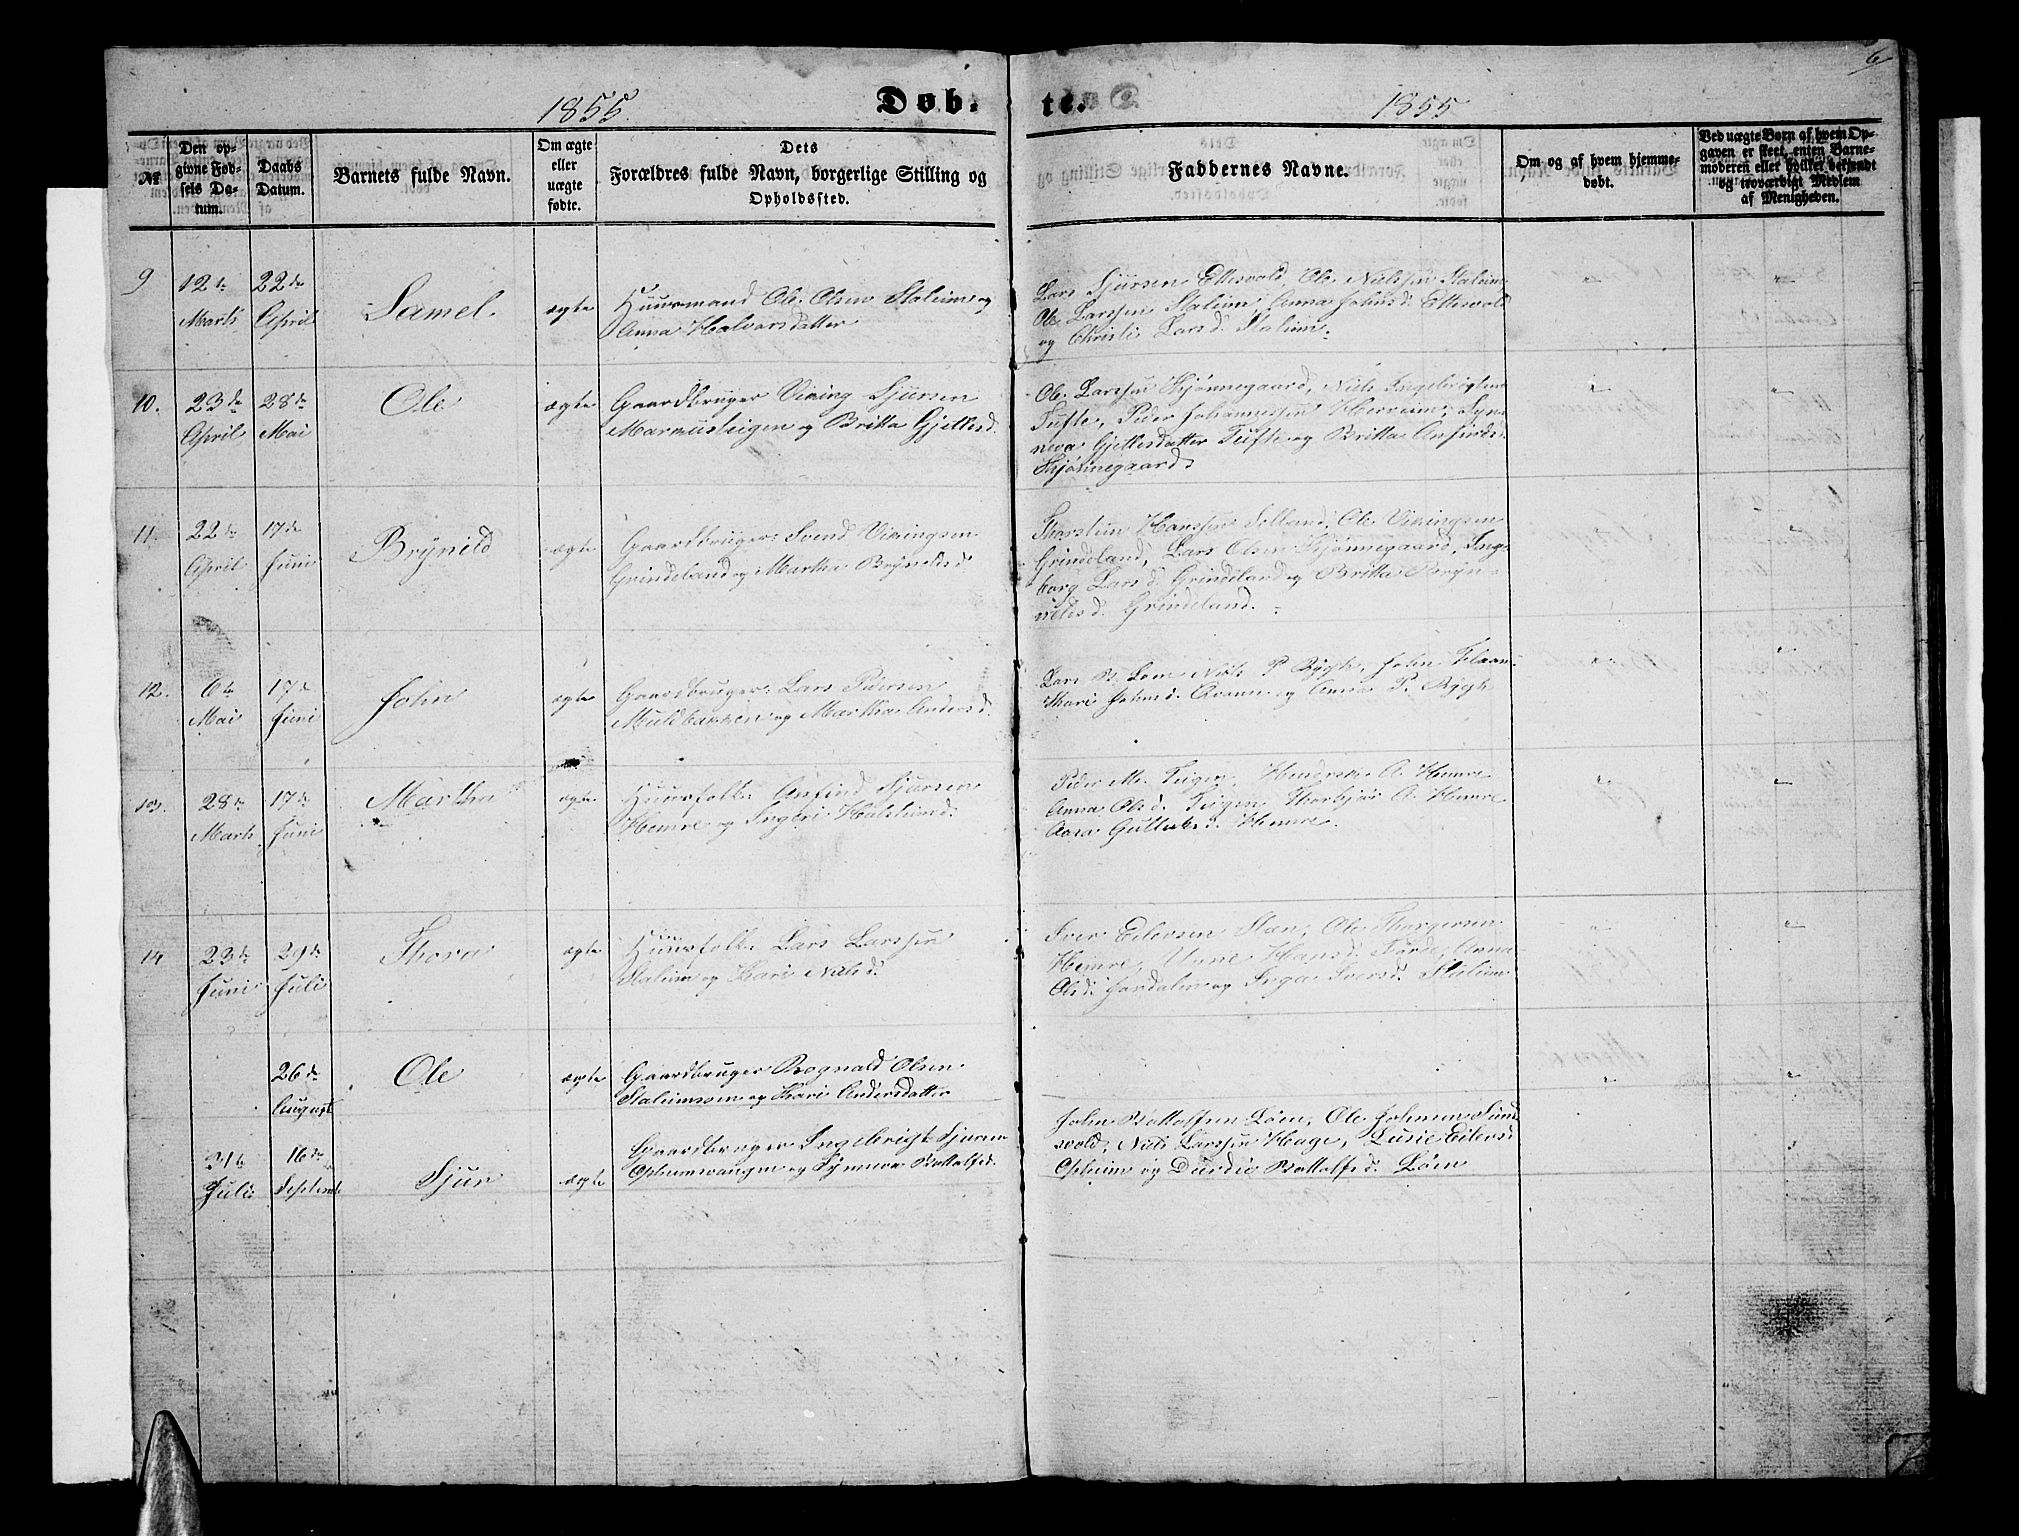 6
1855. Døb. te. 1855
№
Den opgivne Fødsels Datum.
Daabs Datum.
Barnets fulde Navn.
Om ægte eller uægte fødte.
Dets Forældres fulde Navn, borgerlige Stilling og Opholdssted.
Faddernes Navne.
Om og af hvem hjemmedøbt.
Ved uægte Børn af hvem Opgaven er skeet, enten Barnemoderen eller hvilket bekjendt og troværdigt Medlem af Menigheden.
9 12te Marts 22de April Samel ægte
Huusmand Ole Olsen Staleim og
Anna Halvorsdatter
Lars Sjursen Ettesvold, Ole Nielssen Staleim
Ole Larssen Staleim, Anna Johnsd. Ettesvold
og Christi Larsd. Staleim.
10. 23de April 28de Mai Ole ægte
Gaardbruger Viking Sjursen
og Britta Gjellesd.
Ole Larssen Skjønnegaard, Niels Ingebrigtsen
Tufte, Peder Johannessen Herreim, Syn-
neva Gjellesdatter Tufte og Britta Anfinds.
Skjønnegaard
11. 22de April 17de Juni Brynild ægte
Gaardbruger Svend Vikingsen
Grindeland og Martha Brynelsd
Thorstein Hanssen Selland, Ole Vikingsen
Grindeland, Lars Olsen Skjønnegaard, Inge
borg Larsd. Grindeland og Britta Bryn-
nelsd. Grindeland.
12. 6te Mai 17de Juni John ægte
Gaardbruger Lars Peersen
Muldbakken og Martha Andersd.
Lars B. Løen Niels P. Rygh, John
Kari Johnsd. og Anna P. Rygh
13. 28de Marts 17de Juni Martha ægte
Huusfolk Anfind Sjursen
Hemre og Ingeri
Peder M. Teigen, A. Hemre
Anna Olsd. Teigen Thorbjør A. Hemre
Hemre.
14 23de Juni 29de Juli Thora ægte
Huusfolk Lars Larssen
Staleim og Kari Nielsd.
Iver Eilevsen Steen, Ole Thorgersen
Hemre, Unne Hansd. Førde, Anna
Olsd. Jordalen og Inga Iversd. Staleim
26de August Ole ægte
Gaardbruger Rognald Olsen
og Kari Andersdatter
31te Juli 16de Septembr Sjur ægte
Gaardbruger Ingebrigt Sjursen
Opheimsvangen og Synneva Bottolfsd.
John Bottolfsen Løen, Ole Johnsen
Niels Larssen Hage, Lusie Eilevsd
Opheim og Durdie Bottolfsd. Løen